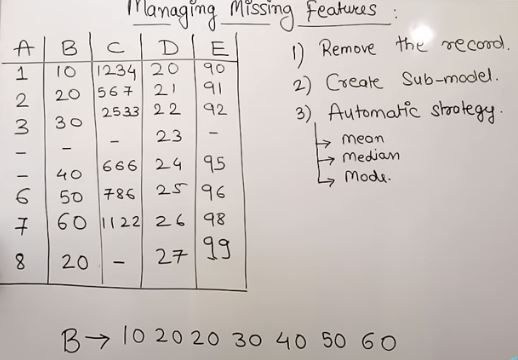 Managing Missing Features :
A B C D E
1 10 1234 20 90
2 20 567 21 91
3 30 2533 22 92
- - - 23 -
- 40 666 24 95
6 50 786 25 96
7 60 1122 26 98
8 20 - 27 99
1) Remove the record.
2) Create Sub-model.
3) Automatic strategy.
→ mean
→ median
→ Mode.
B → 10 20 20 30 40 50 60